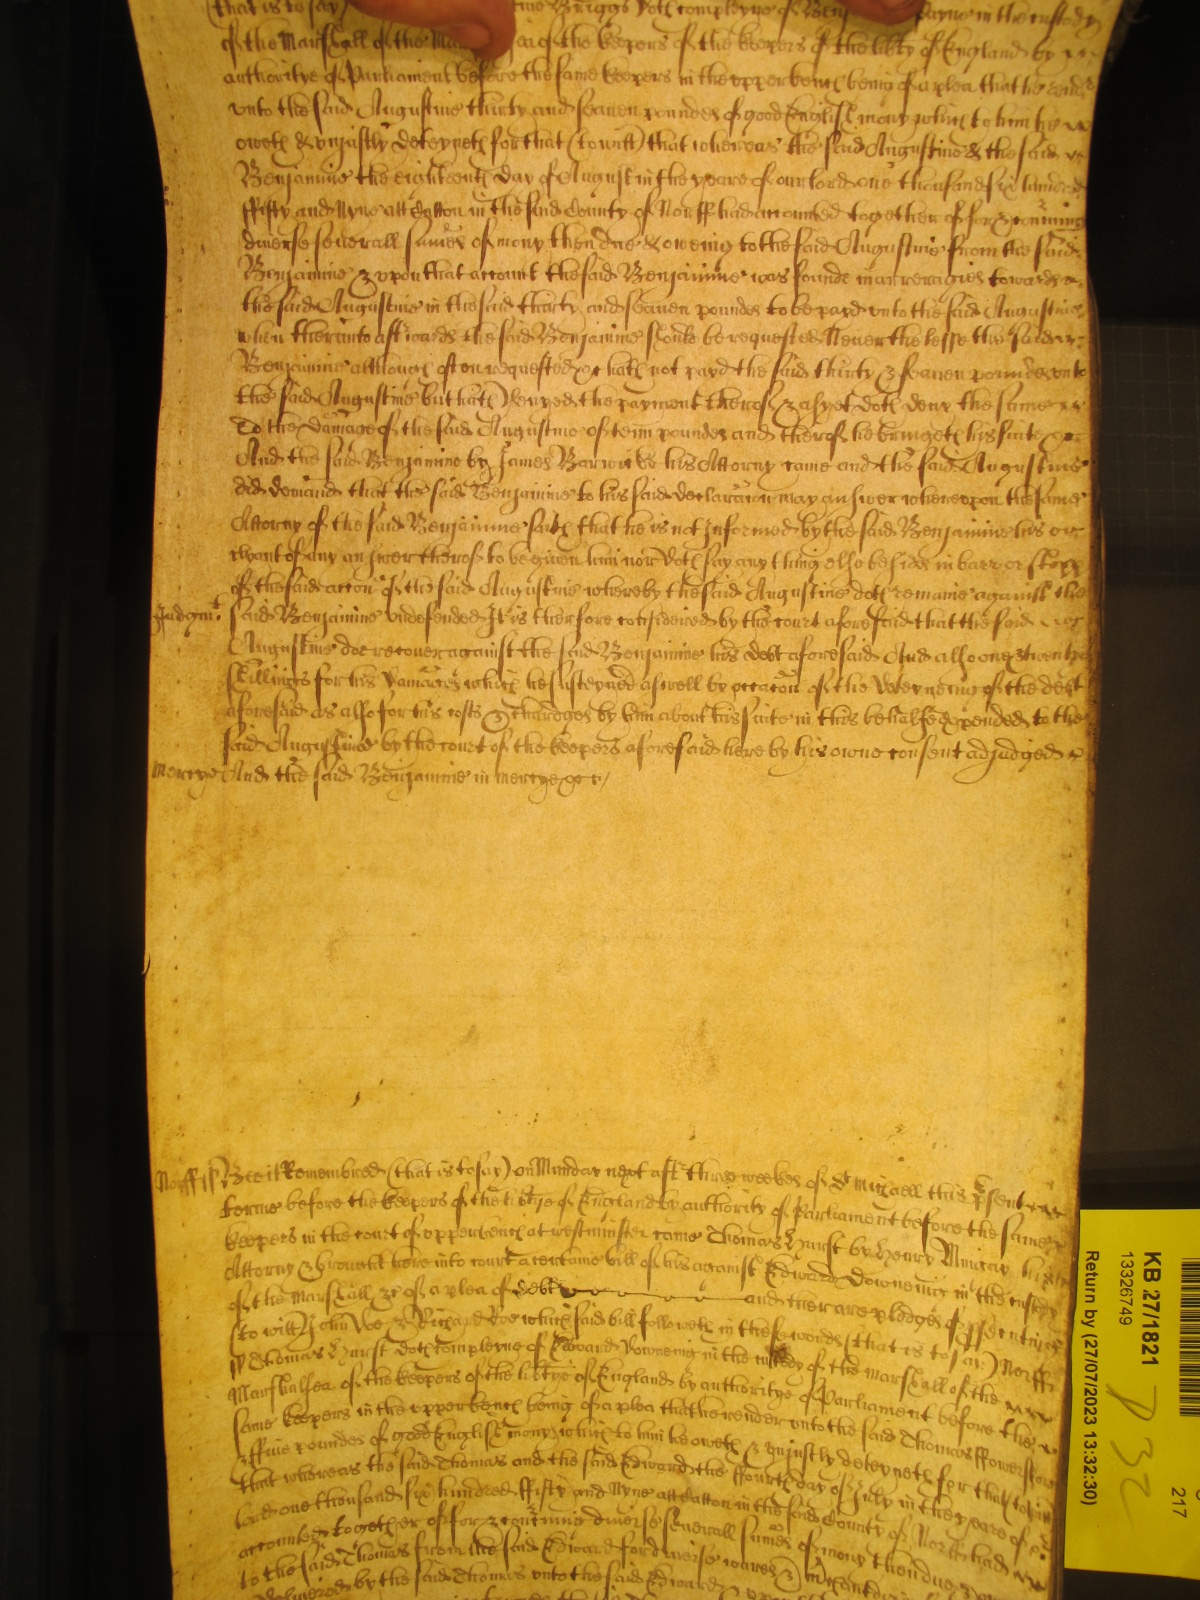 (that is to say) Briggs doth complayne of Payne in the custody
of the Marshall of the of the keepers of the keepers of the lib'ty of England by
authoritye of Parliament before the same keepers in the upper bench being of a plea that he render
unto the said Augustine thirty and seaven poundes of good English mony which to him he
oweth & unjustly deteyneth for that (to witt) that whereas the said Augustine & the said
Benjamine the eighteenth day of August in the yeare of our lord one thousand six hundred
ffifty and Nyne att in the said County of Norff had accounted together of for & concerning
diverse severall sumes of mony then due & oweing to the said Augustine from the said
Benjamine & upon that account the said Benjamine was founde in arreragies towards
the said Augustine in the said thirty and seaven poundes to be payd unto the said Augustine
when thereunto afterwards the said Benjamine should be requested Neverthelesse the said
Benjamine although often requested &c hath not payd the said thirty & seaven poundes unto
the said Augustine but hath denyed the payment therof & as yet doth deny the same
To the damage of the said Augustine of tenn poundes and therof he bringeth his suite &c
And the said Benjamine by James Barwicke his Attorny came and the said Augustine
did demand that the said Benjamine to his said declaracion may answer whereupon the same
Attorny of the said Benjamine saith that he is not Informed by the said Benjamine his
client of any answer therof to be given him nor doth say any thing else besides in barr or stopp
of the said accon of the said Augustine whereby the said Augustine doth remaine against the
Judgmt said Benjamine undefended It is therfore considered by the court aforesaid that the said
Augustine doe recover against the said Benjamine his debt aforesaid And also one & twenty
shillings for his damages which he susteyned aswell by occacon of the deteyneing of the debt
aforesaid as also for his costs & chardges by him about his suite in this behalfe expended to the
said Augustine by the court of the keepers aforesaid here by his owne consent adjudged
Mercye And the said Benjamine in mercye &c
Norff ss Bee it Remembred (that is to say) on Munday next aft' three weekes of St Michaell this p'sent
terme before the keepers of the lib'tye of England by authority of Parliament before the same
keepers in the court of upper bench at westminster came Thomas Hurst by Henry his
Attorny & brought here into court a certaine bill of his against Edward Downeing in the custody
of the Marshall &c of a plea of debt and ther are pledges of
(to witt) John Doe & Richard Roe which said bill followeth in these words (that is to say) Norff
ss Thomas Hurst doth complayne of Edward Downeing in the custody of the marshall of the
Marshalsea of the keepers of the lib'tye of England by authoritye of Parliament before the
same keepers in the upper bench being of a plea that he render unto the said Thomas
& ffive poundes of good English mony which to him he oweth & unjustly deteyneth for that (to witt)
that whereas the said Thomas and the said Edward the ffourth day of July in the yeare of our
lord one thousand six hundred ffifty and Nyne att in the said County of Norff had
accounted together of for & concerning diverse severall sumes of mony then due &
to the said Thomas from the said Edward for diverse wares &
delivered by the said Thomas unto the said Edward &
KB 27/1821
13326749
Return by (27/07/2023 13:32:30)
217